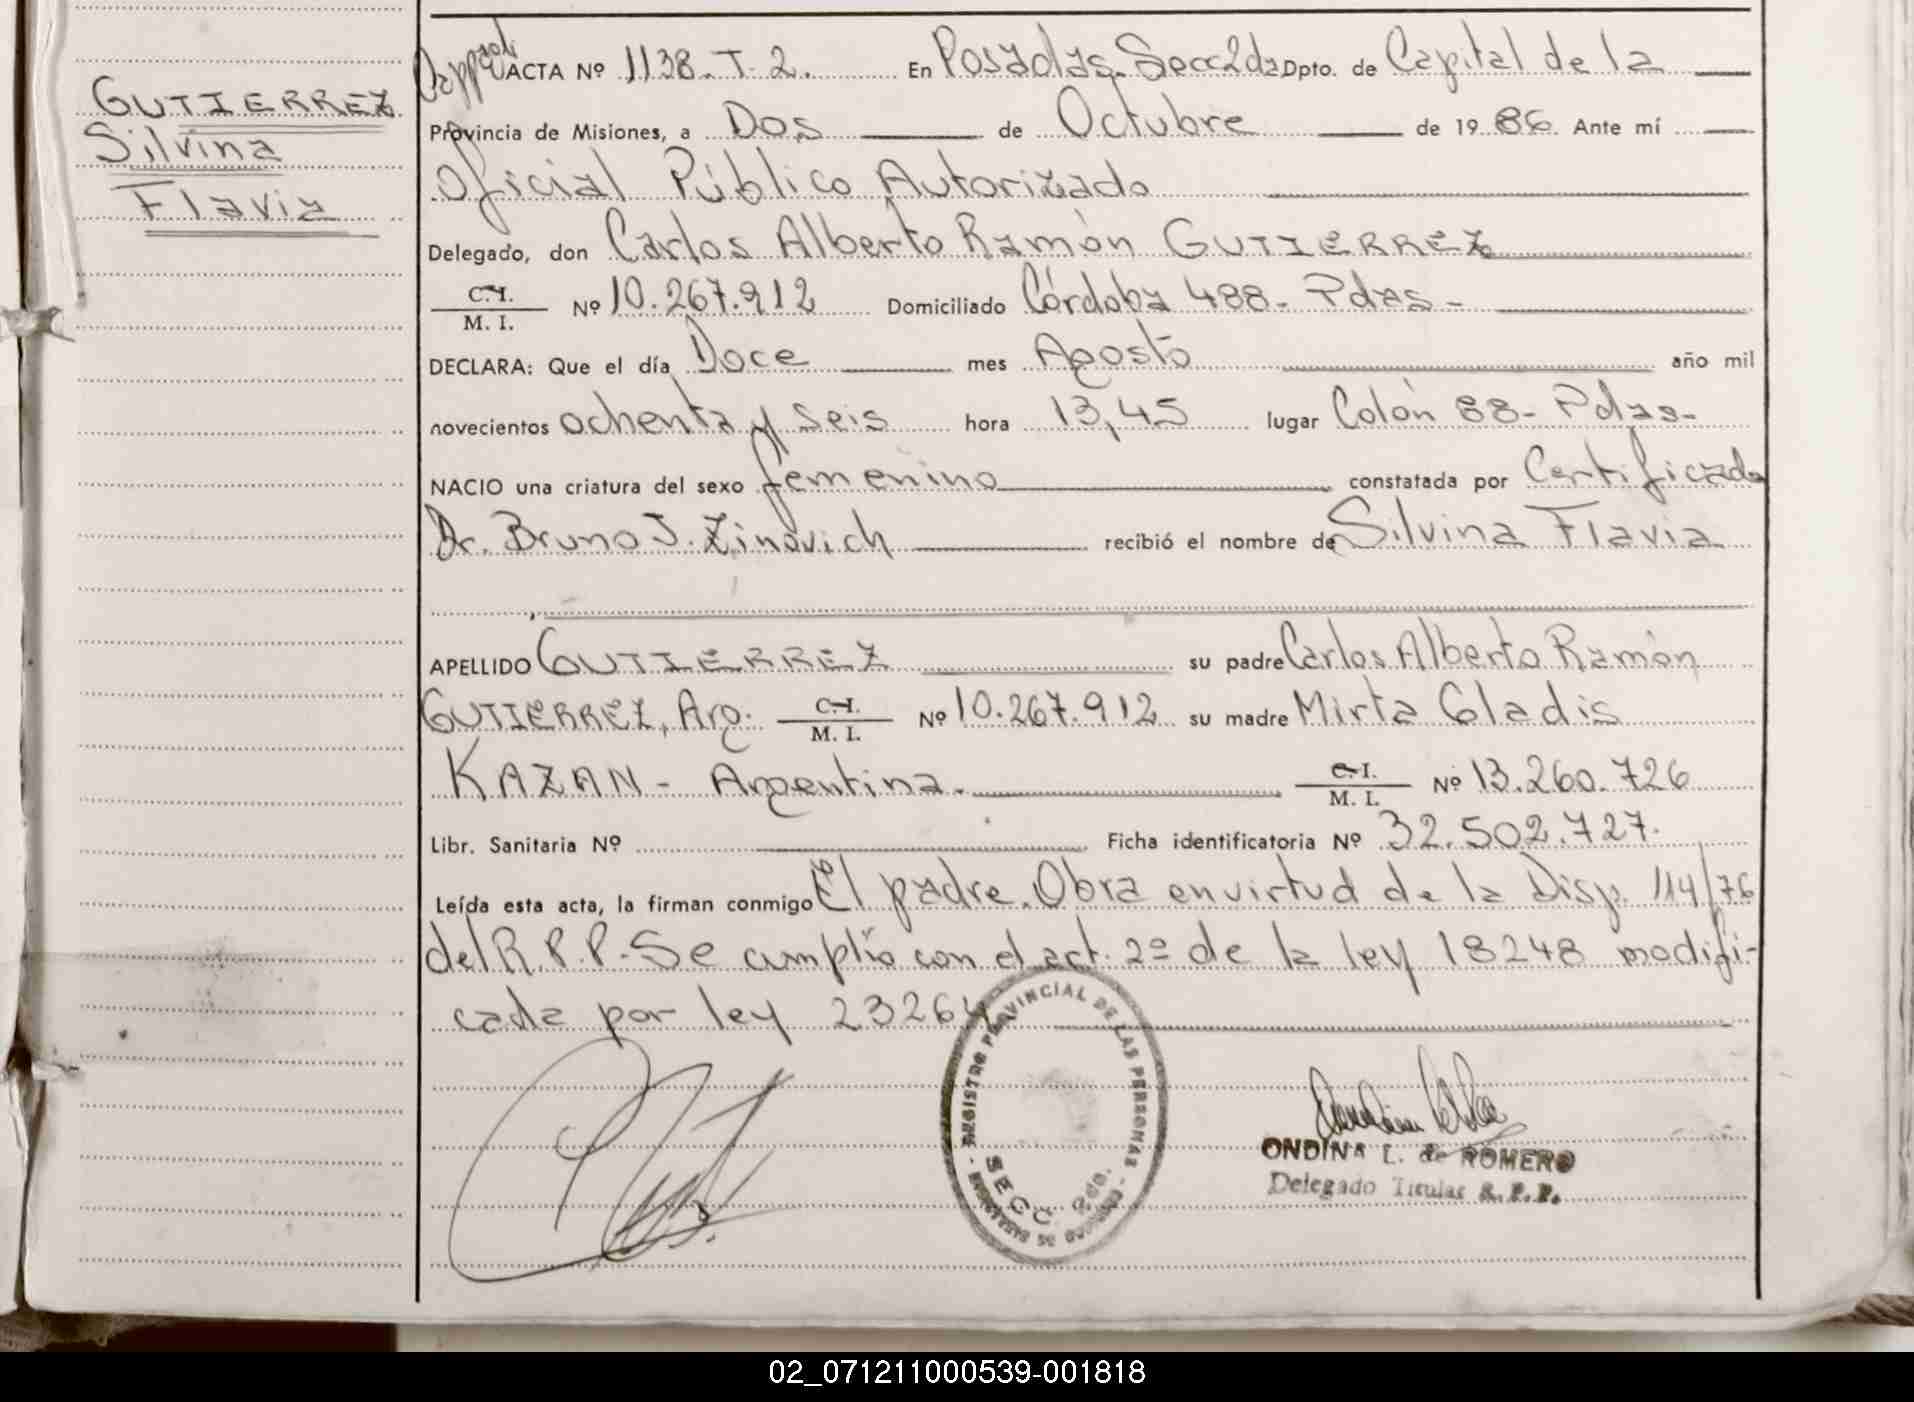 GUTIERREZ
Silvina
Flavia
ACTA Nº 1138. T. 2. En Posadas. Secc 2da Dpto. de Capital de la
Provincia de Misiones, a Dos de Octubre de 1986. Ante mí
Oficial Público Autorizado
Delegado, don Carlos Alberto Ramón GUTIERREZ
C.I.
M. I. Nº 10.267.912 Domiciliado Córdoba 488 - Pdas -
DECLARA: Que el día Doce mes Agosto año mil
novecientos ochenta y seis hora 13,45 lugar Colón 88 - Pdas -
NACIO una criatura del sexo femenino constatada por Certificado
Dr. Bruno J. Zinovich recibió el nombre de Silvina Flavia
APELLIDO GUTIERREZ su padre Carlos Alberto Ramón
GUTIERREZ, Arg. C.I.
M. I. Nº 10.267.912 su madre Mirta Gladis
KAZAN - Argentina. C.I.
M. I. Nº 13.260.726
Libr. Sanitaria Nº Ficha identificatoria Nº 32.502.727.
Leída esta acta, la firman conmigo El padre. Obra en virtud de la Disp. 114/76
del R.P.P. - Se cumplió con el art. 2º de la ley 18248 modifi-
cada por ley 23264
REGISTRO PROVINCIAL DE LAS PERSONAS
SECC. 2da.
ONDINA L. de ROMERO
Delegado Titular R. P. P.
02_071211000539-001818